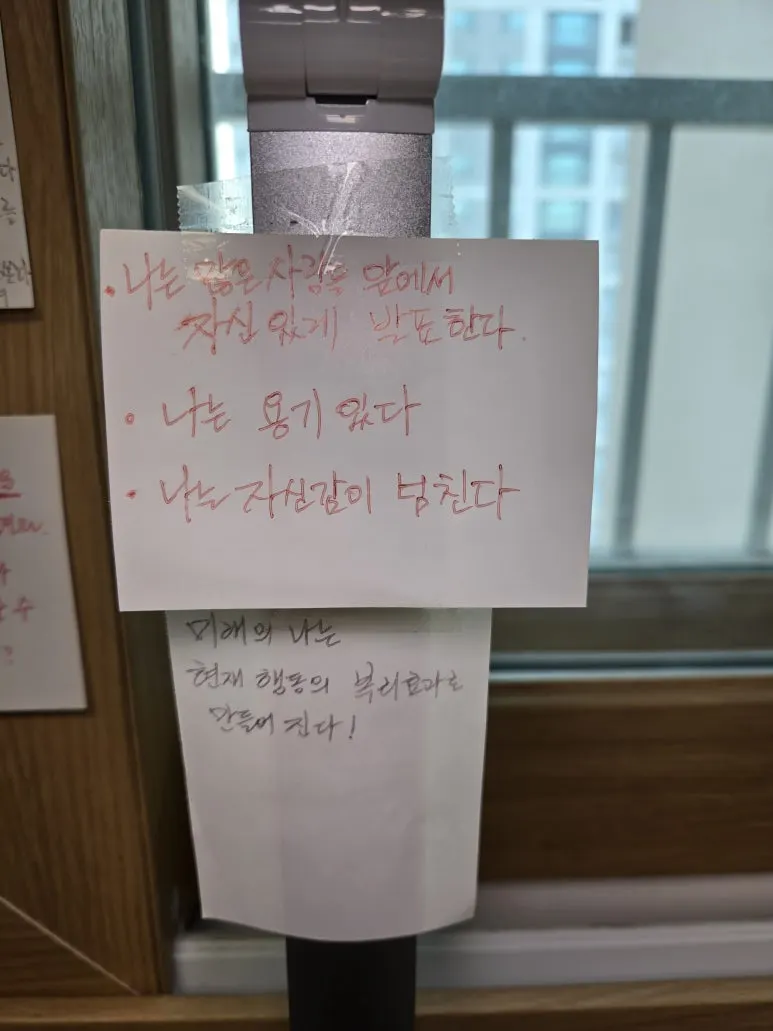 다
를
• 나는 많은 사람들 앞에서
자신 있게 발표한다.
• 나는 용기 있다
• 나는 자신감이 넘친다
수
?
미래의 나는
현재 행동의 복리효과로
만들어 진다!